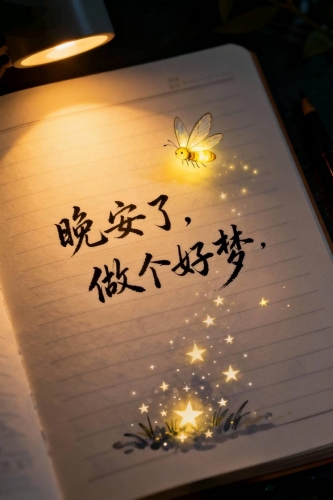 晚安了，
做个好梦，